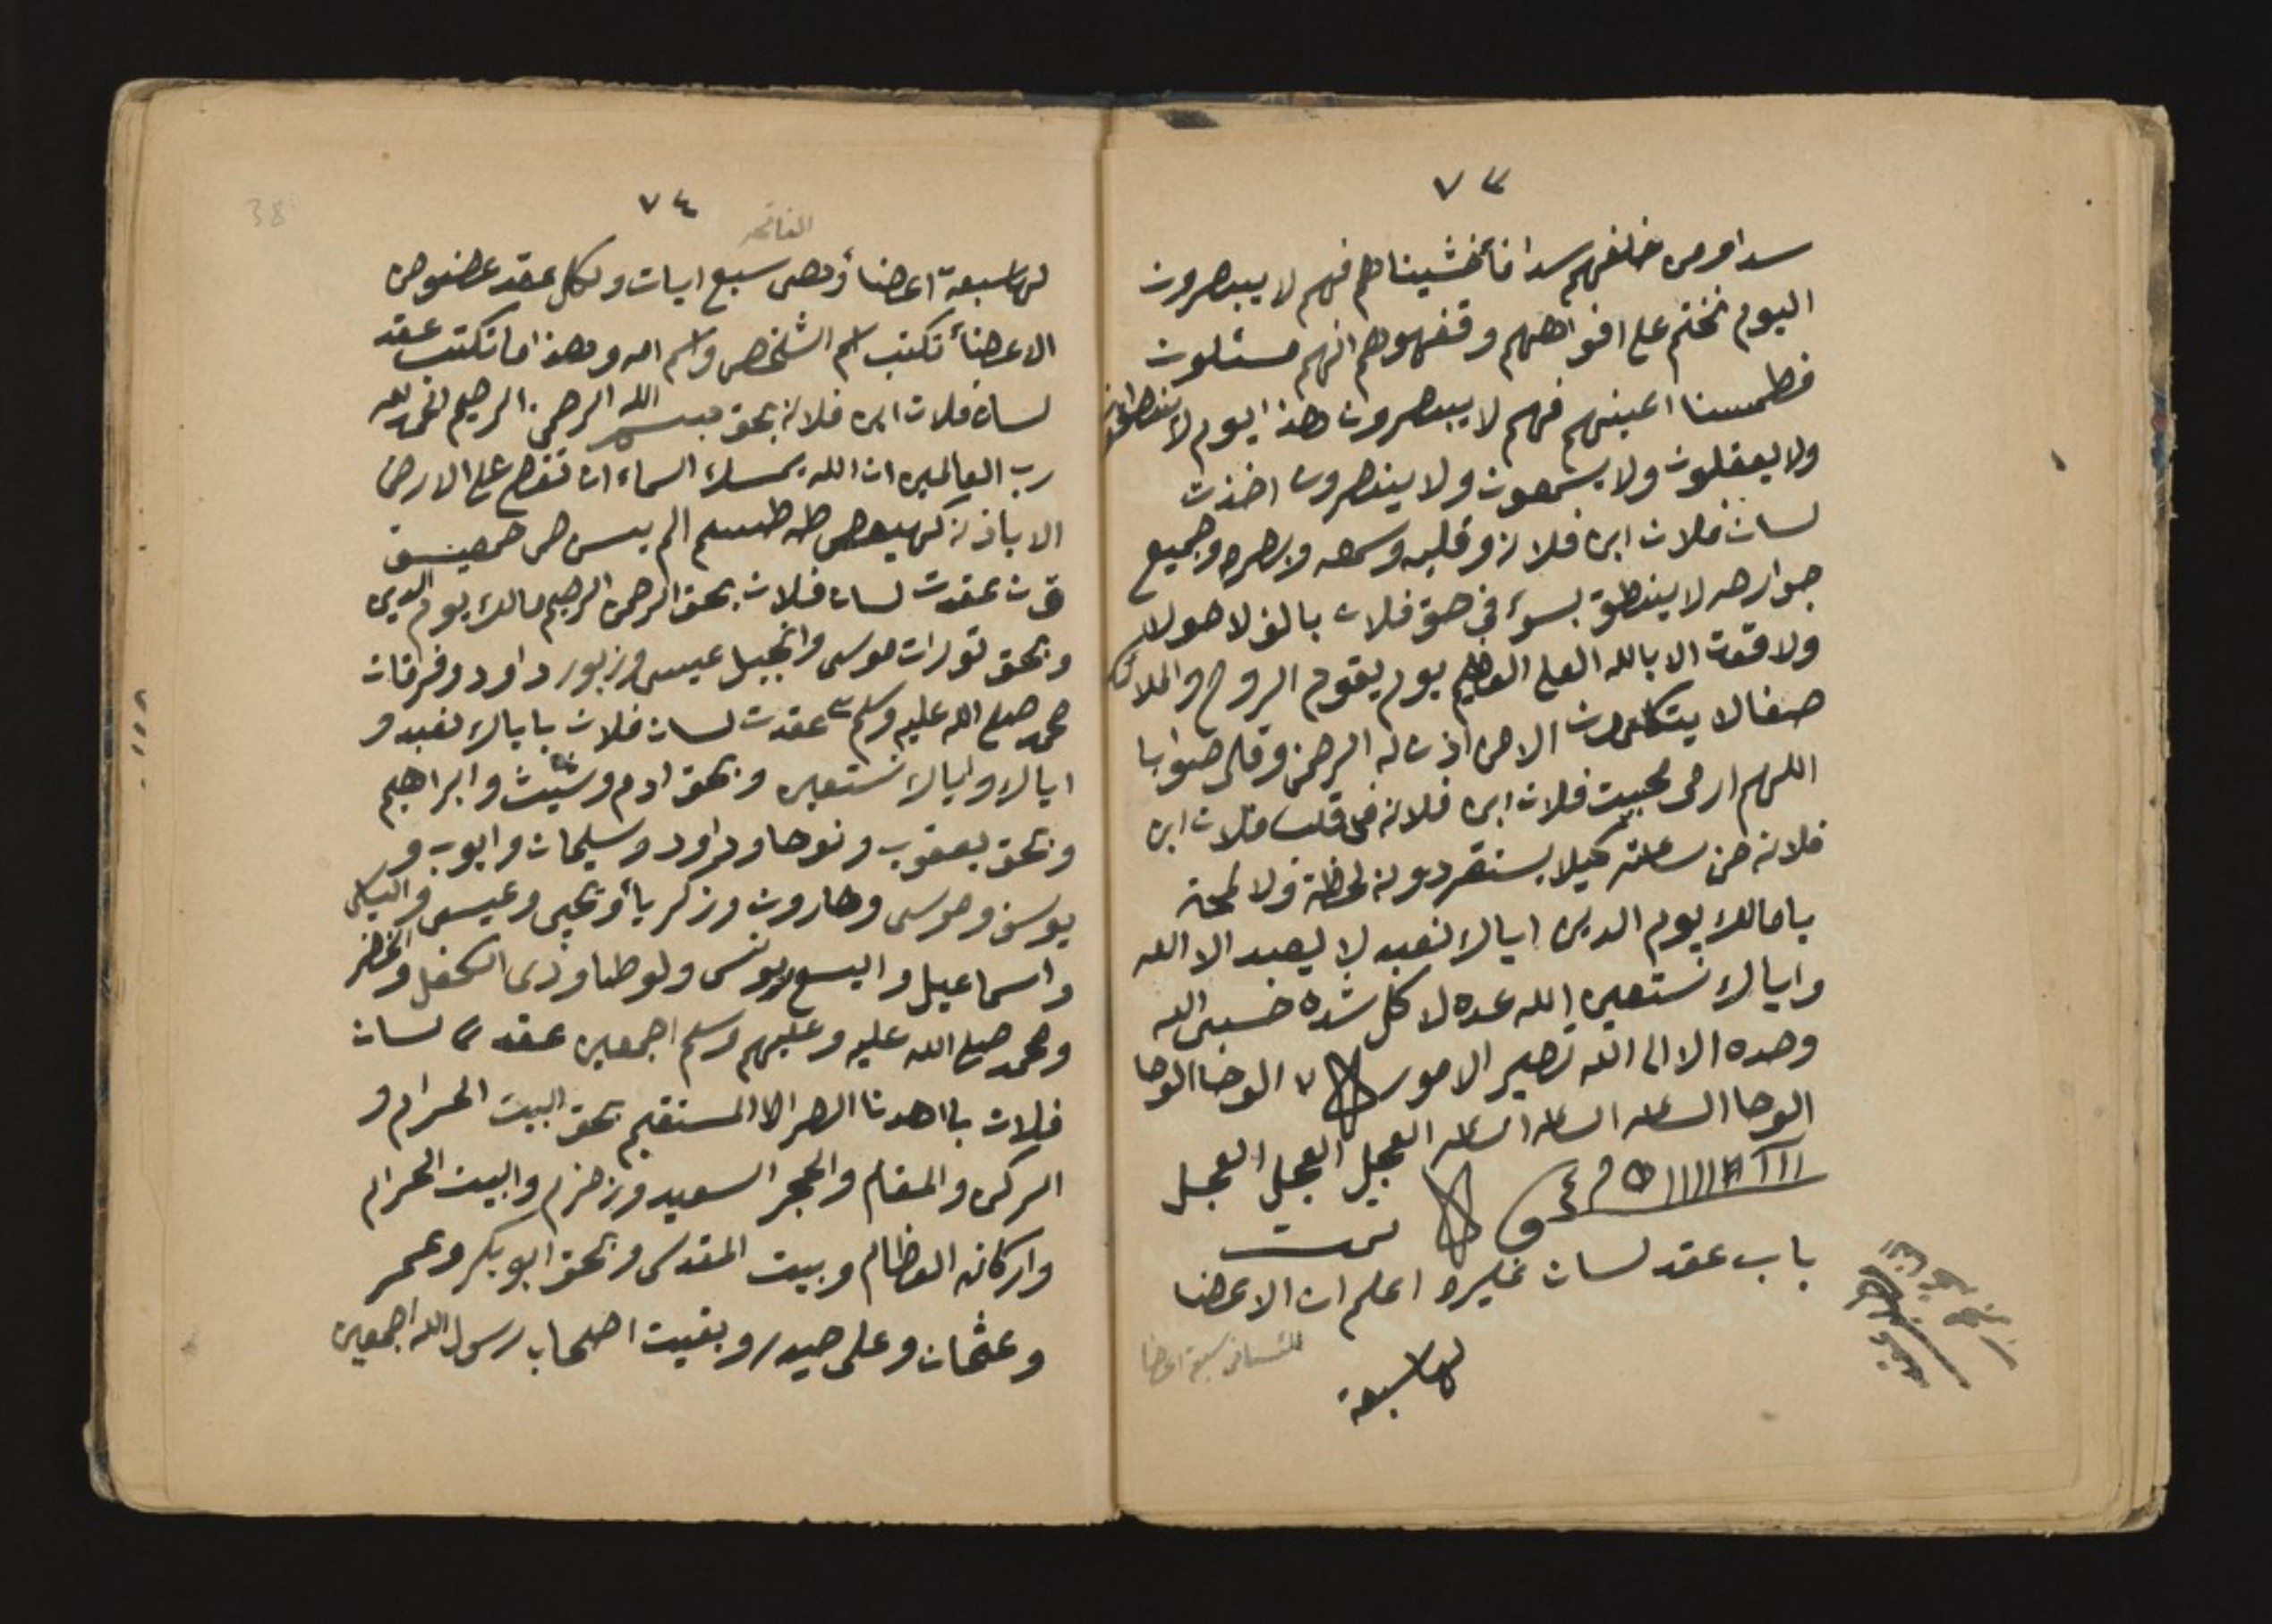 ٧٣
سدا ومن خلفهم سدا فأغشيناهم فهم لا يبصرون
اليوم نختم على افواههم وقفهوهم انهم مسئلون
فطمسنا اعينهم فهم لا يبصرون هذا يوم لا ينطقون
ولا يعقلون ولا يسمعون ولا ينصرون اخذت
لسان فلان ابن فلانه وقلبه وسمعه وبصره وجميع
جوارحه لا ينطق بسوء في حق فلان بالف لا حولا
ولا قوت الا بالله العلي العظيم يوم يقوم الروح والملائكه
صفا لا يتكلمون الا من اذن له الرحمن وقال صوابا
اللهم ارمى محبيت فلان ابن فلانه فى قلب فلان ابن
فلانه من ساعته كيلا يستقر دونه لحظة ولا لمحة
يا مالك يوم الدين اياك نعبد لا يعبد الا الله
واياك نستعين الله عده لا كل شده حسبى الله
وحده الا الى الله تصير الامور ٧ الوحا الوحا
الوحا الساعه الساعه الساعه العجل العجل العجل
تمت
باب عقد لسان غيره اعلم ان الاعضا
للنسان سبعة اعضا
لها سبعة
٧٤
الفاتحه
لها سبعة اعضاأ وهى سبع ايات ولكل عقد عضو من
الاعضاأ تكتب اسم الشخص واسم امه وهذا ما تكتب عقد
لسان فلان ابن فلانه بحق بسم الله الرحمن الرحيم الحمد لله
رب العالمين ان الله يمسك السماء ان تقع على الارض
الا باذنه كهيعص طه طسم الم يس ص حمعسق
ق ن عقدت لسان فلان بحق الرحمن الرحيم مالك يوم الدين
وبحق تورات موسى وانجيل عيسى وزبور داود وفرقان
محمد صلى الله عليه وسلم عقدت لسان فلان باياك نعبد و
اياك واياك نستعين وبحق ادم وشيث وابراهيم
وبحق يعقوب ونوحا وداود وسليمان وايوب و
يوسف وموسى وهارون وزكرياأ ويحيى وعيسى والياس
واسماعيل واليسع ويونس ولوطا وذى الكفل والخضر
ومحمد صلى الله عليه وعليهم وسلم اجمعين عقدت لسان
فلان باهدنا الصراط المستقيم بحق البيت الحرام و
الركن والمقام والحجر السعيد وزمزم والبيت الحرام
واركانه العظام وبيت المقدس وبحق ابو بكر وعمر
وعثمان وعلى حيدر وبقيت اصحاب رسول الله اجمعين
38